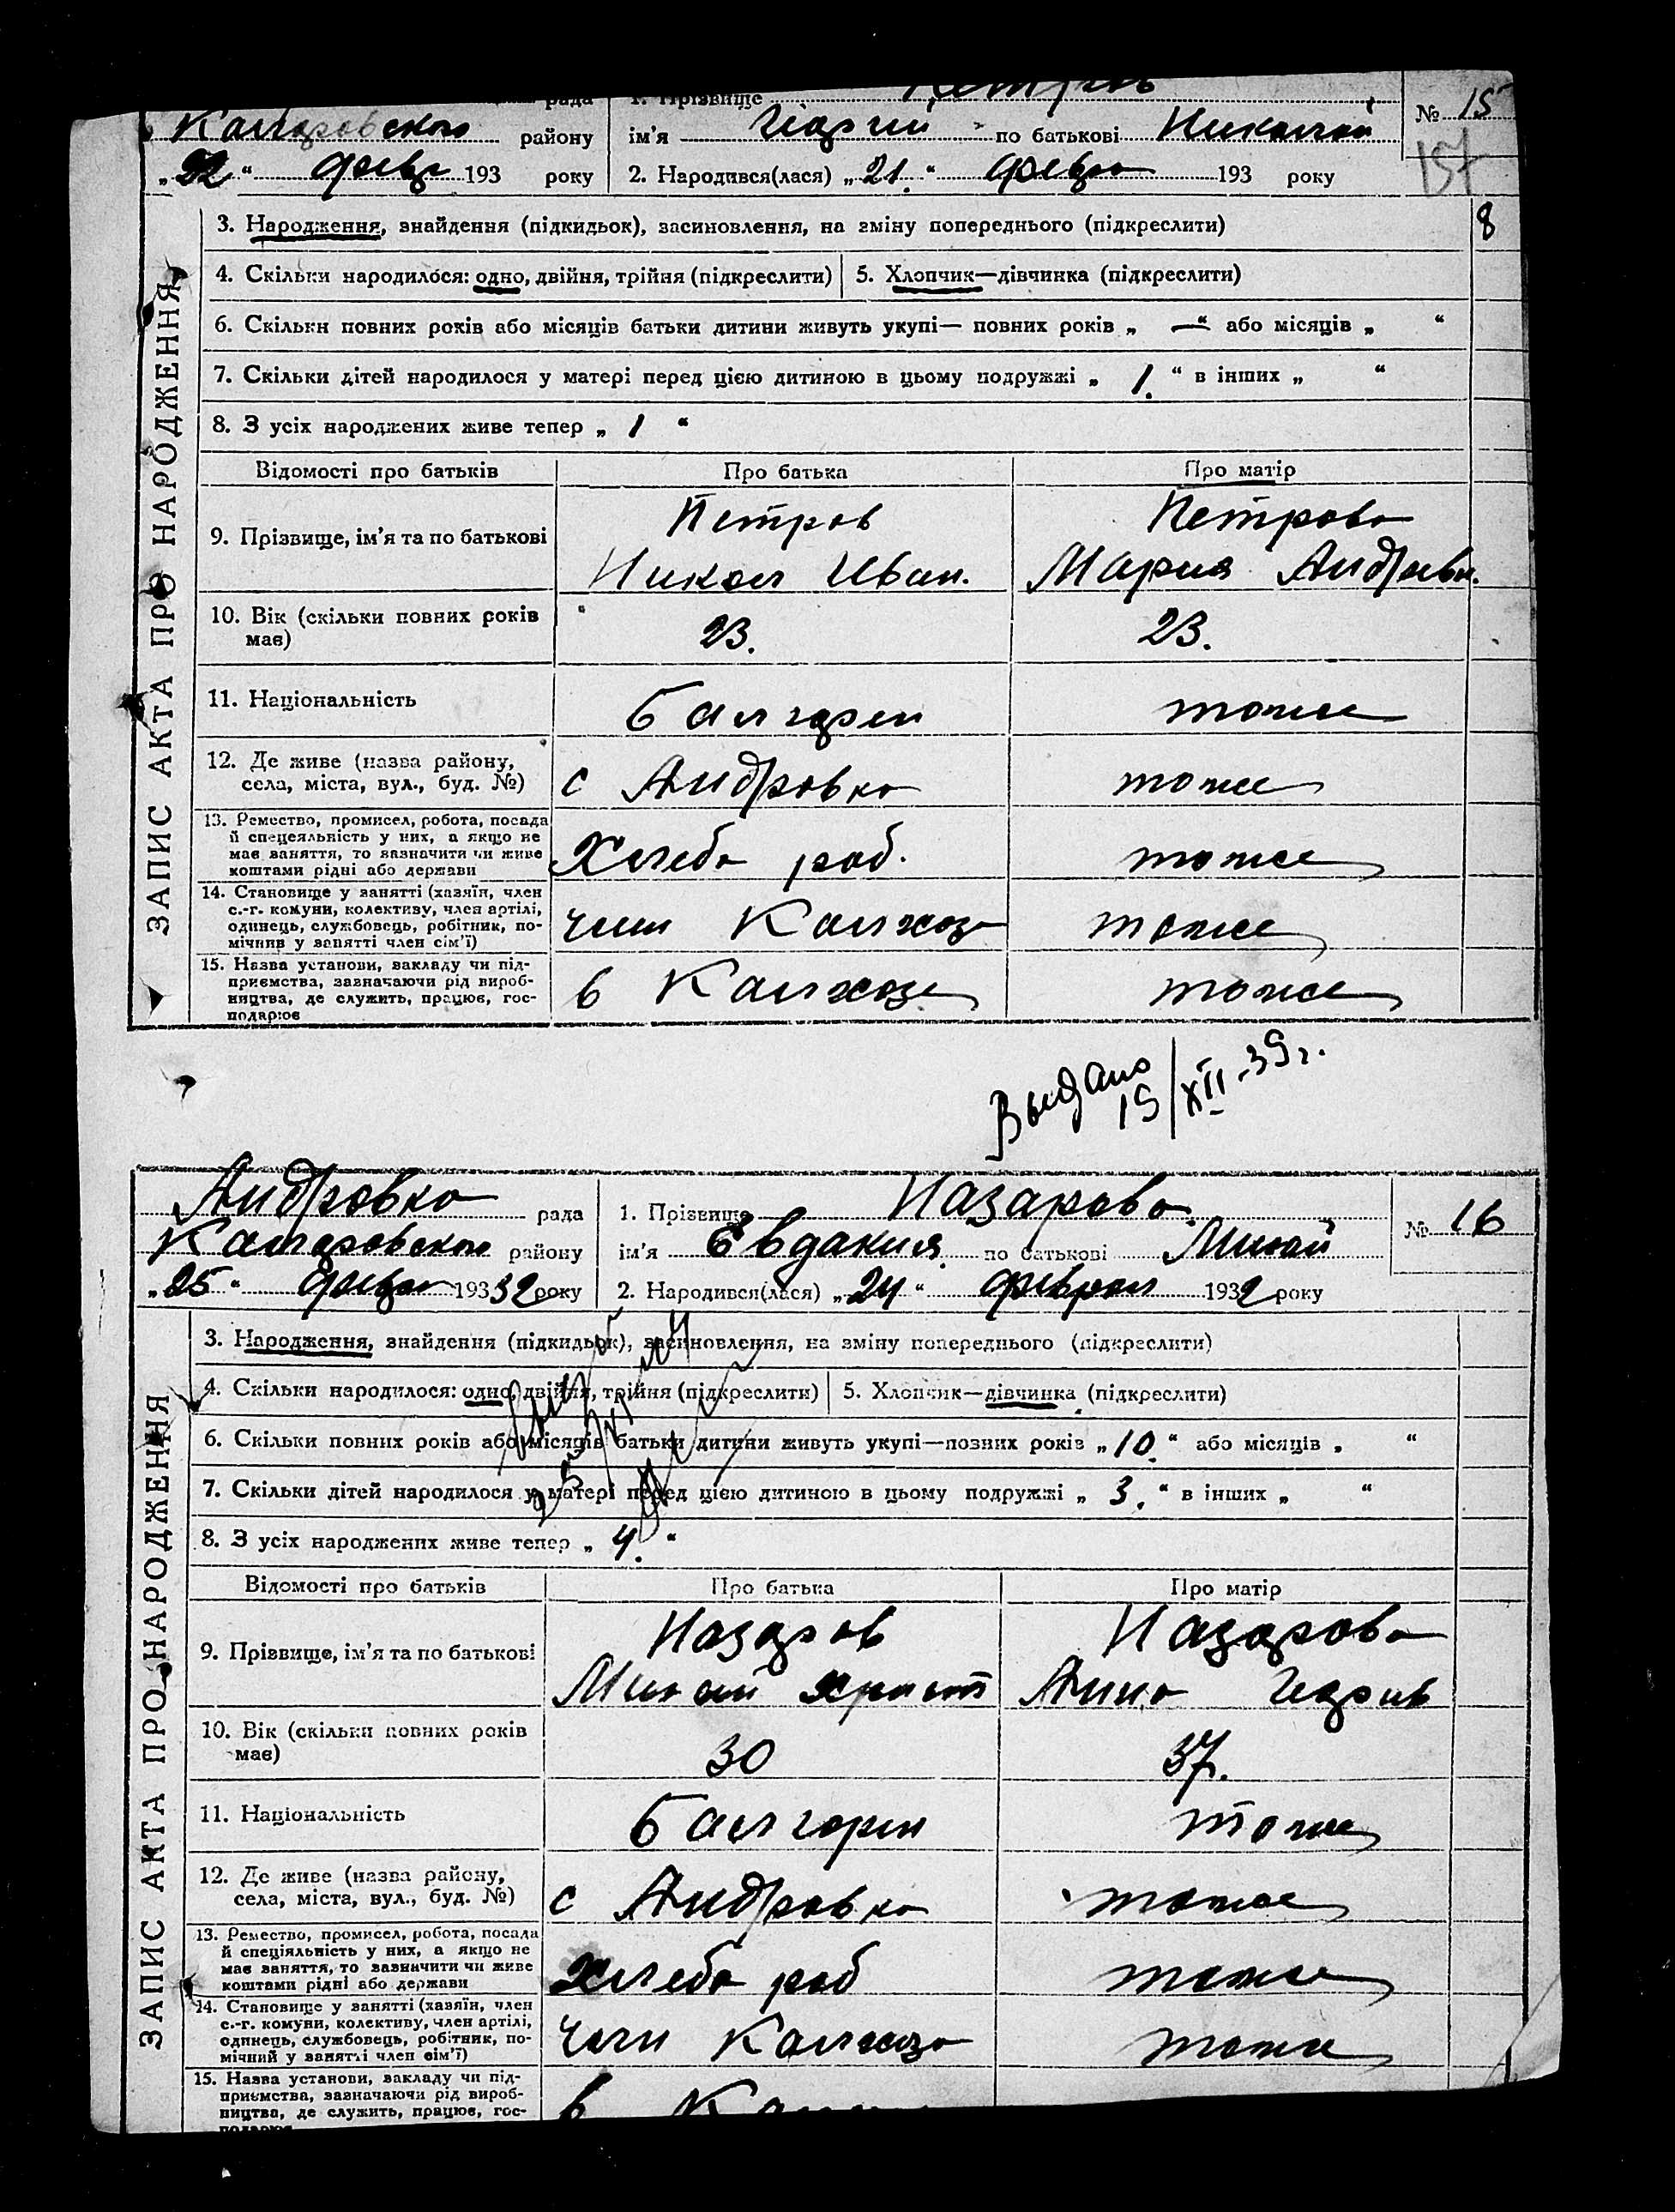 рада 1. Прізвище Петров № 15
Каларовского району ім'я Гіоргий по батькові Николай 157
„22“ февр 193 року 2. Народився(лася) „21.“ февра 193 року
ЗАПИС АКТА ПРО НАРОДЖЕННЯ
3. Народження, знайдення (підкидьок), засиновлення, на зміну попереднього (підкреслити) 8
4. Скільки народилося: одно, двійня, трійня (підкреслити) 5. Хлопчик—дівчинка (підкреслити)
6. Скільки повних років або місяців батьки дитини живуть укупі— повних років „ —“ або місяців „ “
7. Скільки дітей народилося у матері перед цією дитиною в цьому подружжі „ 1. “ в інших „ “
8. З усіх народжених живе тепер „ 1 “
Відомості про батьків Про батька Про матір
9. Прізвище, ім'я та по батькові Петров Петрова
Никол Иван. Мария Андреевн.
10. Вік (скільки повних років має) 23. 23.
11. Національність Балгарен тоже
12. Де живе (назва району,
села, міста, вул., буд. №) с Андровка тоже
13. Ремество, промисел, робота, посада
й спецеяльність у них, а якщо не
має заняття, то зазначити чи живе
коштами рідні або держави Хлеба роб. тоже
14. Становище у занятті (хазяїн, член
с.-г. комуни, колективу, член артілі,
одинець, службовець, робітник, по-
мічник у занятті член сім'ї) член Калхоза тоже
15. Назва установи, закладу чи під-
приємства, зазначаючи рід вироб-
ництва, де служить, працює, гос-
подарює в Калхозе тоже
Выдано
19/XII-39г.
Андровка рада 1. Прізвище Назарова № 16
Каларовского району ім'я Евдакия по батькові Михай
„25“ феврал 19332 року 2. Народився(лася) „24“ феврал 1932 року
ЗАПИС АКТА ПРО НАРОДЖЕННЯ
3. Народження, знайдення (підкидьок), засиновлення, на зміну попереднього (підкреслити)
4. Скільки народилося: одно, двійня, трійня (підкреслити) 5. Хлопчик—дівчинка (підкреслити)
6. Скільки повних років або місяців батьки дитини живуть укупі—повних років „10.“ або місяців „ “
7. Скільки дітей народилося у матері перед цією дитиною в цьому подружжі „ 3. “ в інших „ “
8. З усіх народжених живе тепер „ 4. “
Відомості про батьків Про батька Про матір
9. Прізвище, ім'я та по батькові Назаров Назарова
Михаи Христ Анна Георив
10. Вік (скільки повних років
має) 30 37.
11. Національність Балгарен тоже
12. Де живе (назва району,
села, міста, вул., буд. №) с Андровка тоже
13. Ремество, промисел, робота, посада
й спеціяльність у них, а якщо не
має заняття, то зазначити чи живе
коштами рідні або держави Хлеба роб тоже
14. Становище у занятті (хазяїн, член
с.-г. комуни, колективу, член артілі,
одинець, службовець, робітник, по-
мічний у занятті член сім'ї) член Калхоза тоже
15. Назва установи, закладу чи під-
приємства, зазначаючи рід вироб-
ництва, де служить, працює, гос-
подарює в